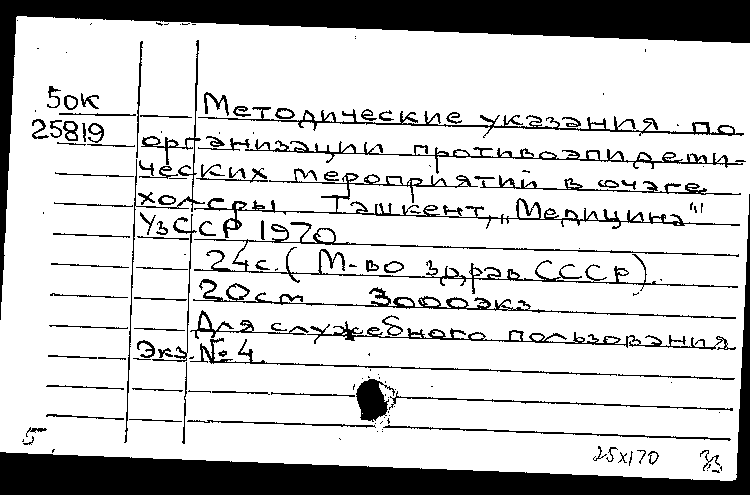 5ок Методические указания по
25819 организации противоэпидеми-
ческих мероприятий в очаге
холеры. Ташкент, „Медицина"
УзССР, 1970
24с. (М-во здрав СССР).
20см 3000экз.
Для служебного пользования
Экз. № 4.
5
25х170